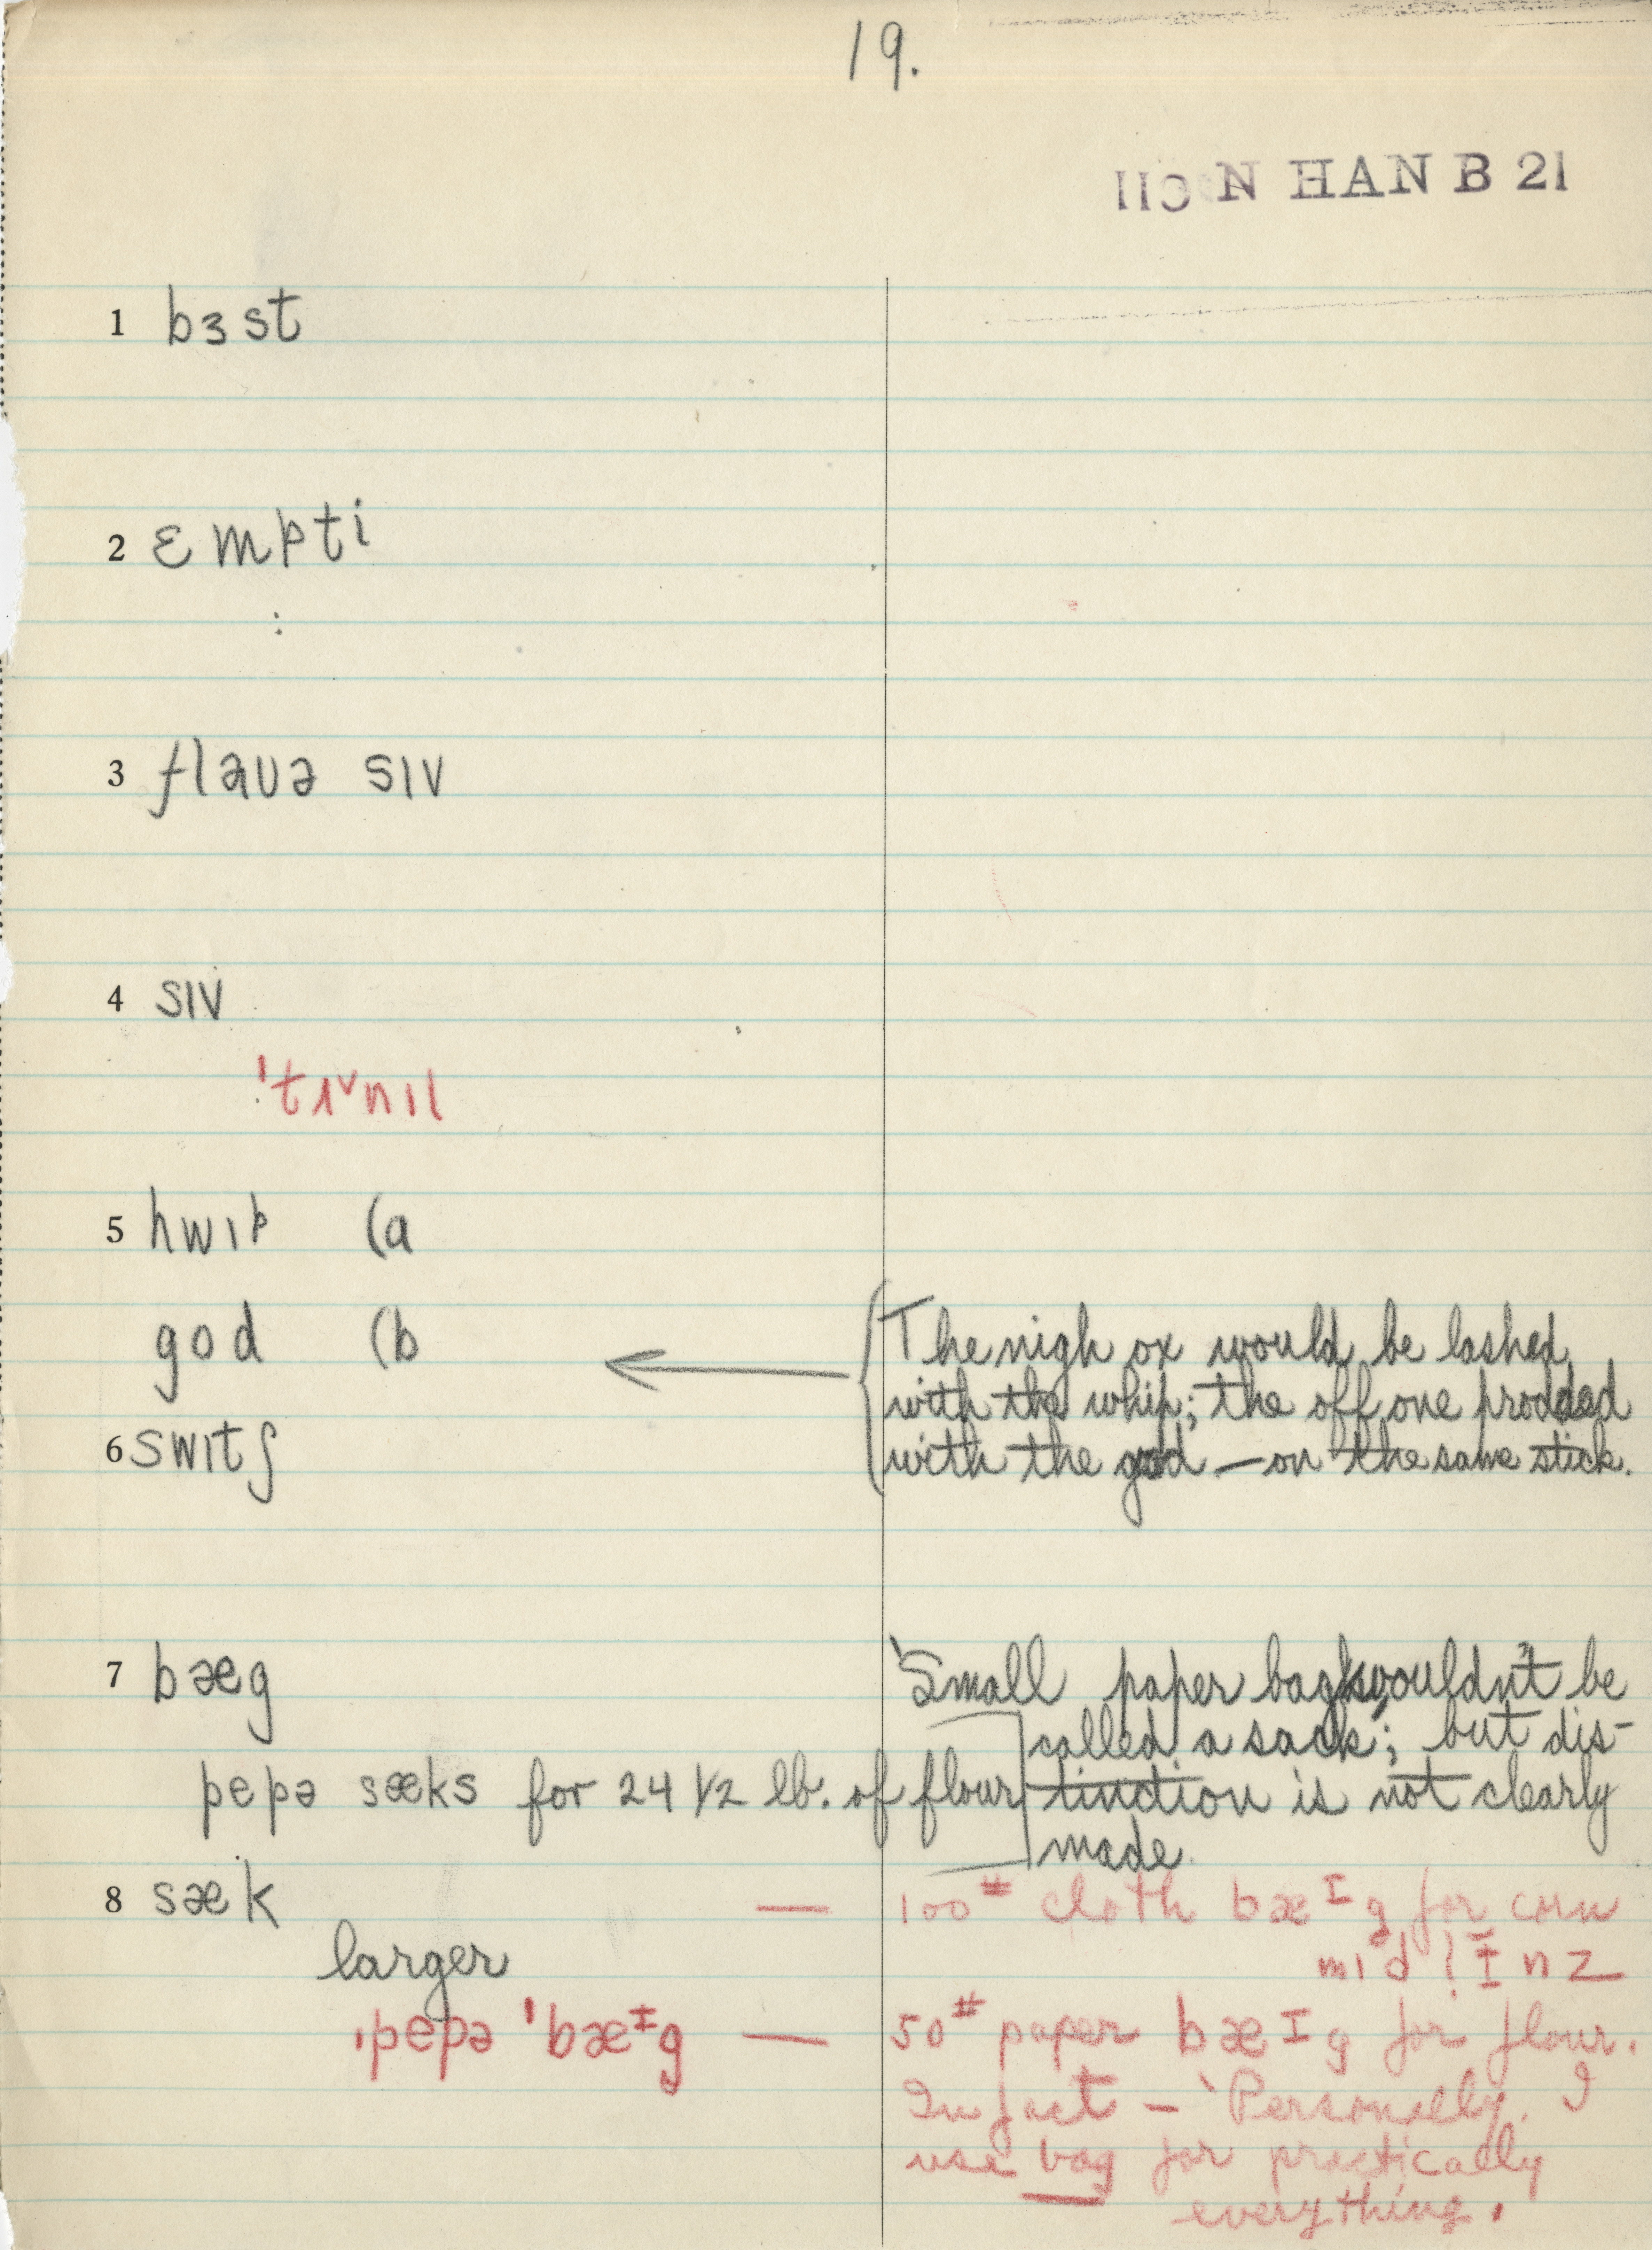 19.
N HAN B 21
1 bɜst
2 ɛmpti
:
3 flaʊə sɪv
4 sɪv
ˈtɪᵛnɪl
5 hwɪp (a
god (b
The nigh ox would be lashed
with the whip; the off one prodded
with the god — on the same stick.
6 swɪtʃ
7 bæg
'Small paper bags wouldn't be
called a sack'; but dis-
pepə sæks for 24 1/2 lb. of flour
tinction is not clearly
made.
8 sæk — 100# cloth bæᴵg for corn
larger
ˌpepə ˈbæᴵg — 50# paper bæᴵg for flour.
In fact — 'Personally, I
use bag for practically
everything.